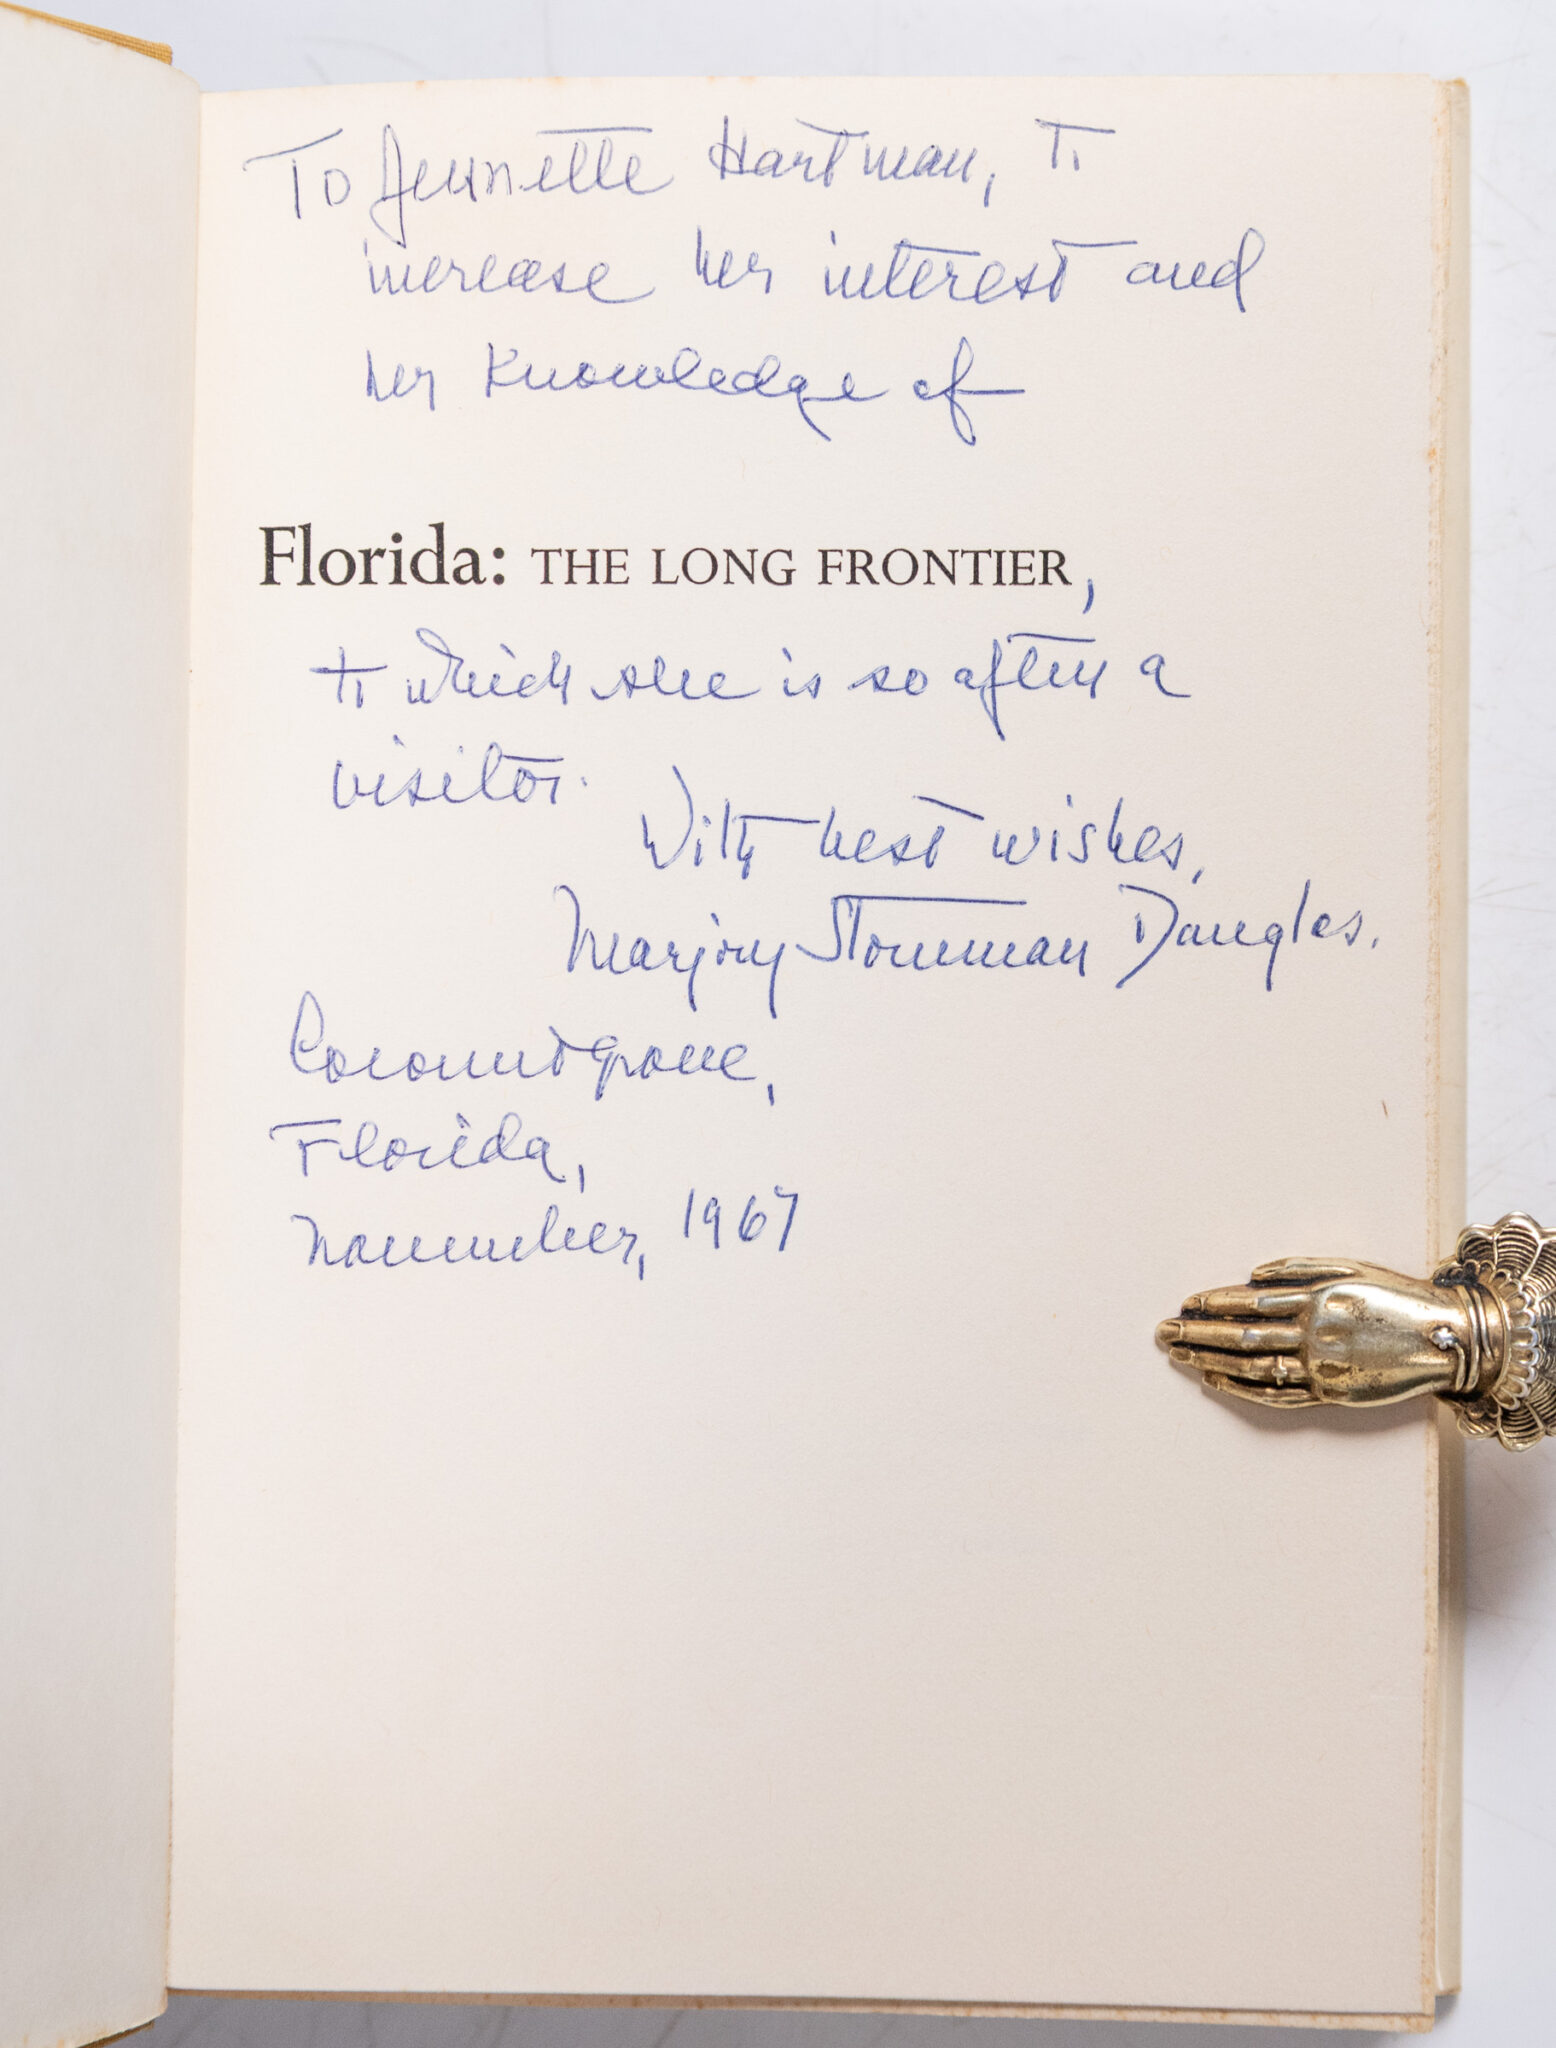 To Jennette Hartman, to
increase her interest and
her knowledge of
Florida: THE LONG FRONTIER,
to which she is so often a
visitor.
With best wishes,
Marjory Stoneman Douglas.
Coconut Grove,
Florida,
November, 1967